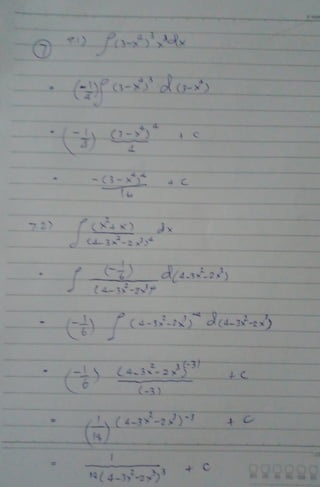 ⑦ 7.1) ∫(3-x⁴)³x³dx
= (-1/4)∫(3-x⁴)³ d(3-x⁴)
= (-1/4) (3-x⁴)⁴/4 + c
= -(3-x⁴)⁴/16 + c
7.2) ∫ (x²+x)/(4-3x²-2x³)⁴ dx
= ∫ (-1/6)/(4-3x²-2x³)⁴ d(4-3x²-2x³)
= (-1/6) ∫ (4-3x²-2x³)⁻⁴ d(4-3x²-2x³)
= (-1/6) (4-3x²-2x³)⁽⁻³⁾/(-3) + c
= (1/18) (4-3x²-2x³)⁻³ + c
= 1/18(4-3x²-2x³)³ + c